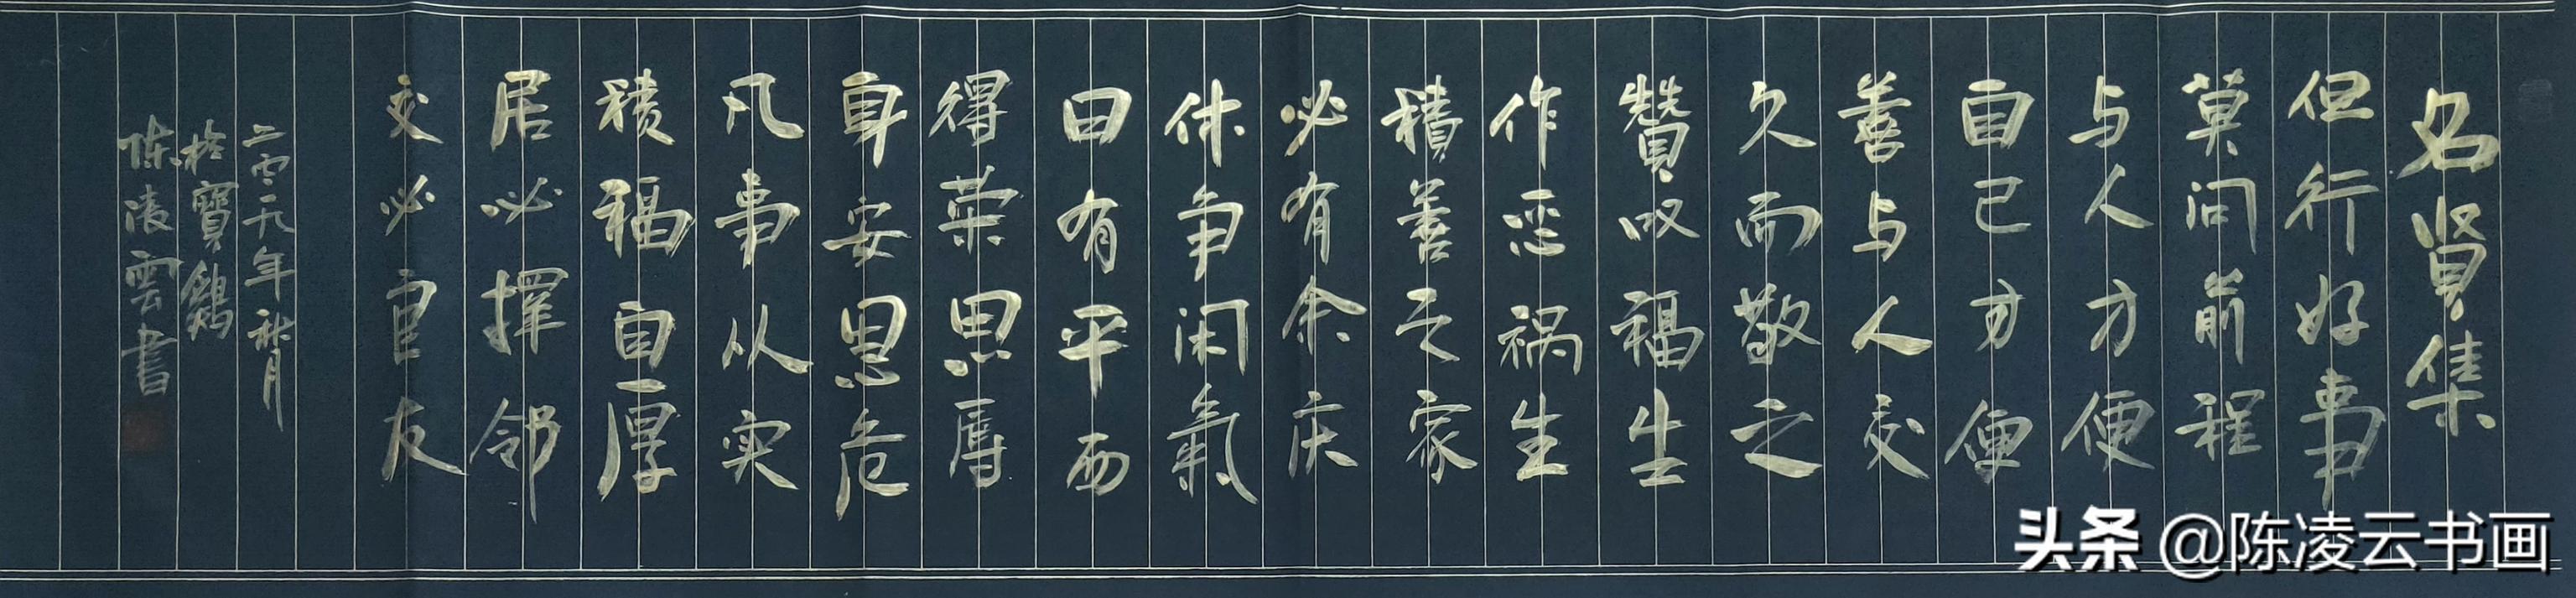 名贤集
但行好事
莫问前程
与人方便
自己方便
善与人交
久而敬之
贊叹福生
作恶祸生
積善之家
必有余庆
休争闲氣
日有平西
得荣思辱
身安思危
凡事从实
积福自厚
居必擇邻
交必良友
二零一九年秋月
於寶鷄
陈凌雲書
头条 @陈凌云书画